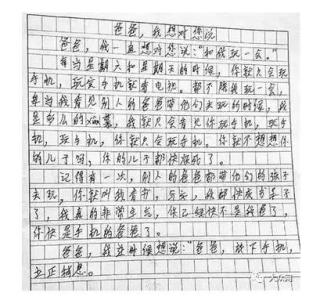 爸爸，我想对您说
爸爸，我一直想对您说："和我玩一会。"
每当星期六和星期天的时候，你就只会玩
手机，玩完手机就看电视，都不陪我玩一会，
每当我看见别人的爸爸带他们去玩的时候，我
是多么的羡慕，我就只会看见你玩手机，玩手
机，玩手机，你就只会玩手机，你就不想想你
的儿子吗，你的儿子都快
记得有一次，别人的爸爸都带他们的孩子
去玩，你就叫我看书，
了，我真的非常生气，你已经快不是我爸了，
你快是手机的爸爸了。
爸爸，我这时候想说："爸爸，放下手机，